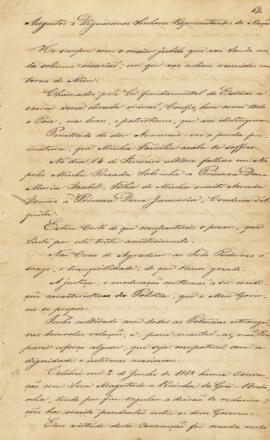 Augustos e Dignissimos Senhores Representantes da Nação
He sempre com o maior jubilo que vos
solemne occasião, em que vos achais reunidos em
torno de Mim.
Chamados pela lei fundamental do Estado a
exercer vossa elevada missão, Confio, bem como todo
o Paiz, nas luzes, e patriotismo, que vos distinguem.
Penetrado de dor Annuncio vos a perda pre-
matura, que Minha Familia acaba de soffrer.
No dia 14 de Fevereiro ultimo falleceo em Na-
poles Minha Prezada Sobrinha a Princeza Dona
Maria Isabel, Filha de Minha muito Amada
Irmãa a Princeza Dona Januaria, Condeça d'A-
quila.
Estou certo de que compartireis o pezar, que
sinto por este triste acontecimento.
Nos Graças ao Todo Poderoso o
socego, e tranquillidade, de que temos gozado.
A justiça, e moderação continuão a ser
caracteristicas da Politica, que o Meu Gover-
no se propoz.
Tenho cultivado com todas as Potencias estrangei-
ras relações, e, para mantel-as, não
esforço algum, que seja compativel com a
dignidade e interesses nacionaes.
Celebrei em 2 de Junho de 1858 huma Conven-
ção com Sua Magestade a Rainha da Grãa Breta-
nha, para regular a decisão de reclama-
ções ha muito pendentes entre os dous Governos.
Em virtude desta Convenção foi creada